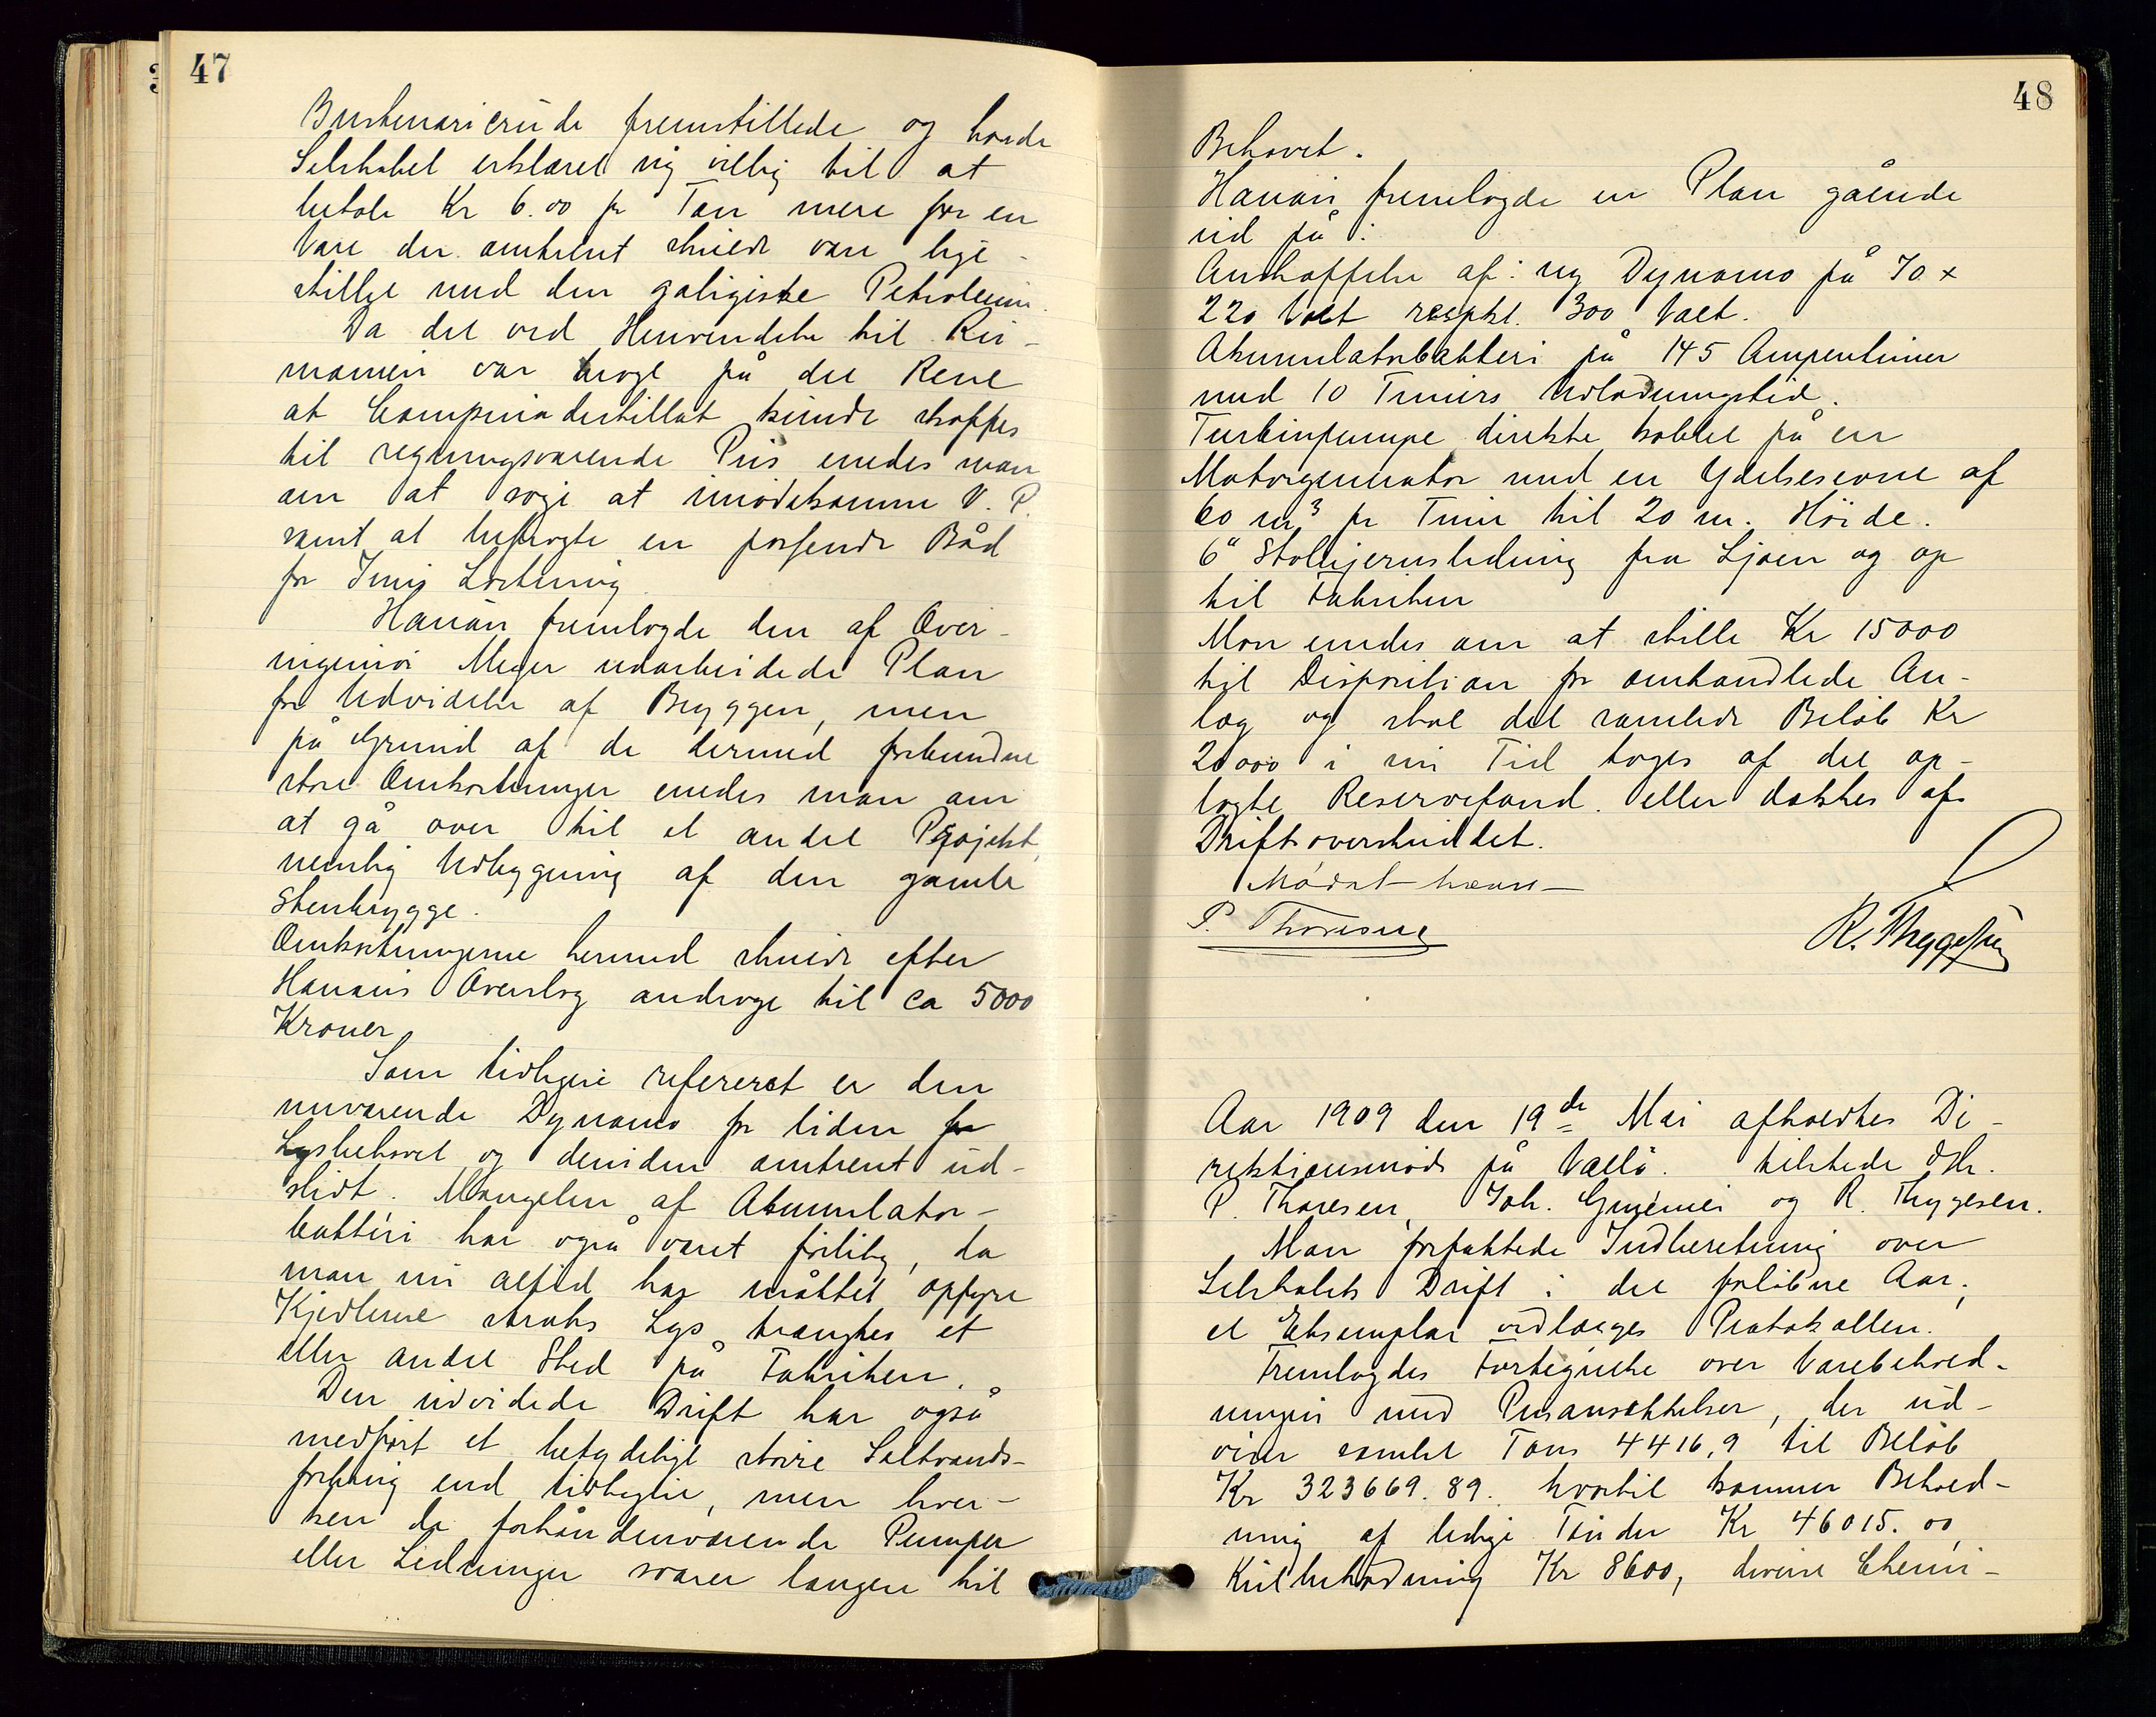 47
Bustenaricrude fremstillede og havde
Selskabet erklæret sig villig til at
betale Kr 6.00 pr Ton mere for en
Vare der omtrent skulde være lige-
stillet med den galiziske Petroleum.
Da det ved Henvendelse til Ru-
mænien var bragt på det Rene
at Campinadestillat kunde skaffes
til regningsvarende Pris enedes man
om at søge at imødekomme V. P.
samt at befragte en passende Båd
for Juni Lastning
Hansen fremlagde den af Over-
ingeniør Meyer udarbeidede Plan
for Udvidelse af Bryggen, men
på Grund af de dermed forbundne
store Omkostninger enedes man om
at gå over til et andet Projekt,
nemlig Udbygning af den gamle
Stenbrygge.
Omkostningerne hermed skulde efter
Hansens Overslag andrage til ca 5000
Kroner
Som tidligere refereret er den
nuværende Dynamo for liden for
Lysbehovet og desuden omtrent ud-
slidt. Mangelen af Akumulator-
batteri har også været følelig, da
man nu altid har måttet opfyre
Kjedlerne straks Lys trængtes et
eller andet Sted på Fabriken.
Den udvidede Drift har også
medført et betydeligt større Saltvands-
forbrug end tidligere, men hver-
ken de forhåndenværende Pumper
eller Ledninger svarer længere til
48
Behovet.
Hansen fremlagde en Plan gående
ud på:
Anskaffelse af: ny Dynamo på 70 x
220 Volt respkt. 300 Volt.
Akumulatorbatteri på 145 Ampertimer
med 10 Timers Udladningstid.
Turbinpumpe direkte koblet på en
Motorgenerator med en Ydelsesevne af
60 m³ pr Time til 20 m. Høide.
6" Støbejernsledning fra Sjøen og op
til Fabriken
Man enedes om at stille Kr 15000
til Disposition for omhandlede An-
læg og skal det samlede Beløb Kr
20000 i sin Tid tages af det op-
lagte Reservefond. eller dækkes af
Driftsoverskuddet.
Mødet hævet
P. Thoresen
R. Thygesen
Aar 1909 den 19de Mai afholdtes Di-
rektionsmøde på Vallø. tilstede DHr.
P. Thoresen, Joh. og R. Thygesen.
Man forfattede Indberetning over
Selskabets Drift i det forløbne Aar;
et Eksemplar vedlægges Protokollen.
Fremlagdes Fortegnelse over Varebehold-
ningen med Prisansættelser, der ud-
viser samlet Tons 4416,9 til Beløb
Kr 323669.89. hvortil kommer Behold-
ning af ledige Tønder Kr 46015.00,
Kulbeholdning Kr 8600, diverse Chemi-